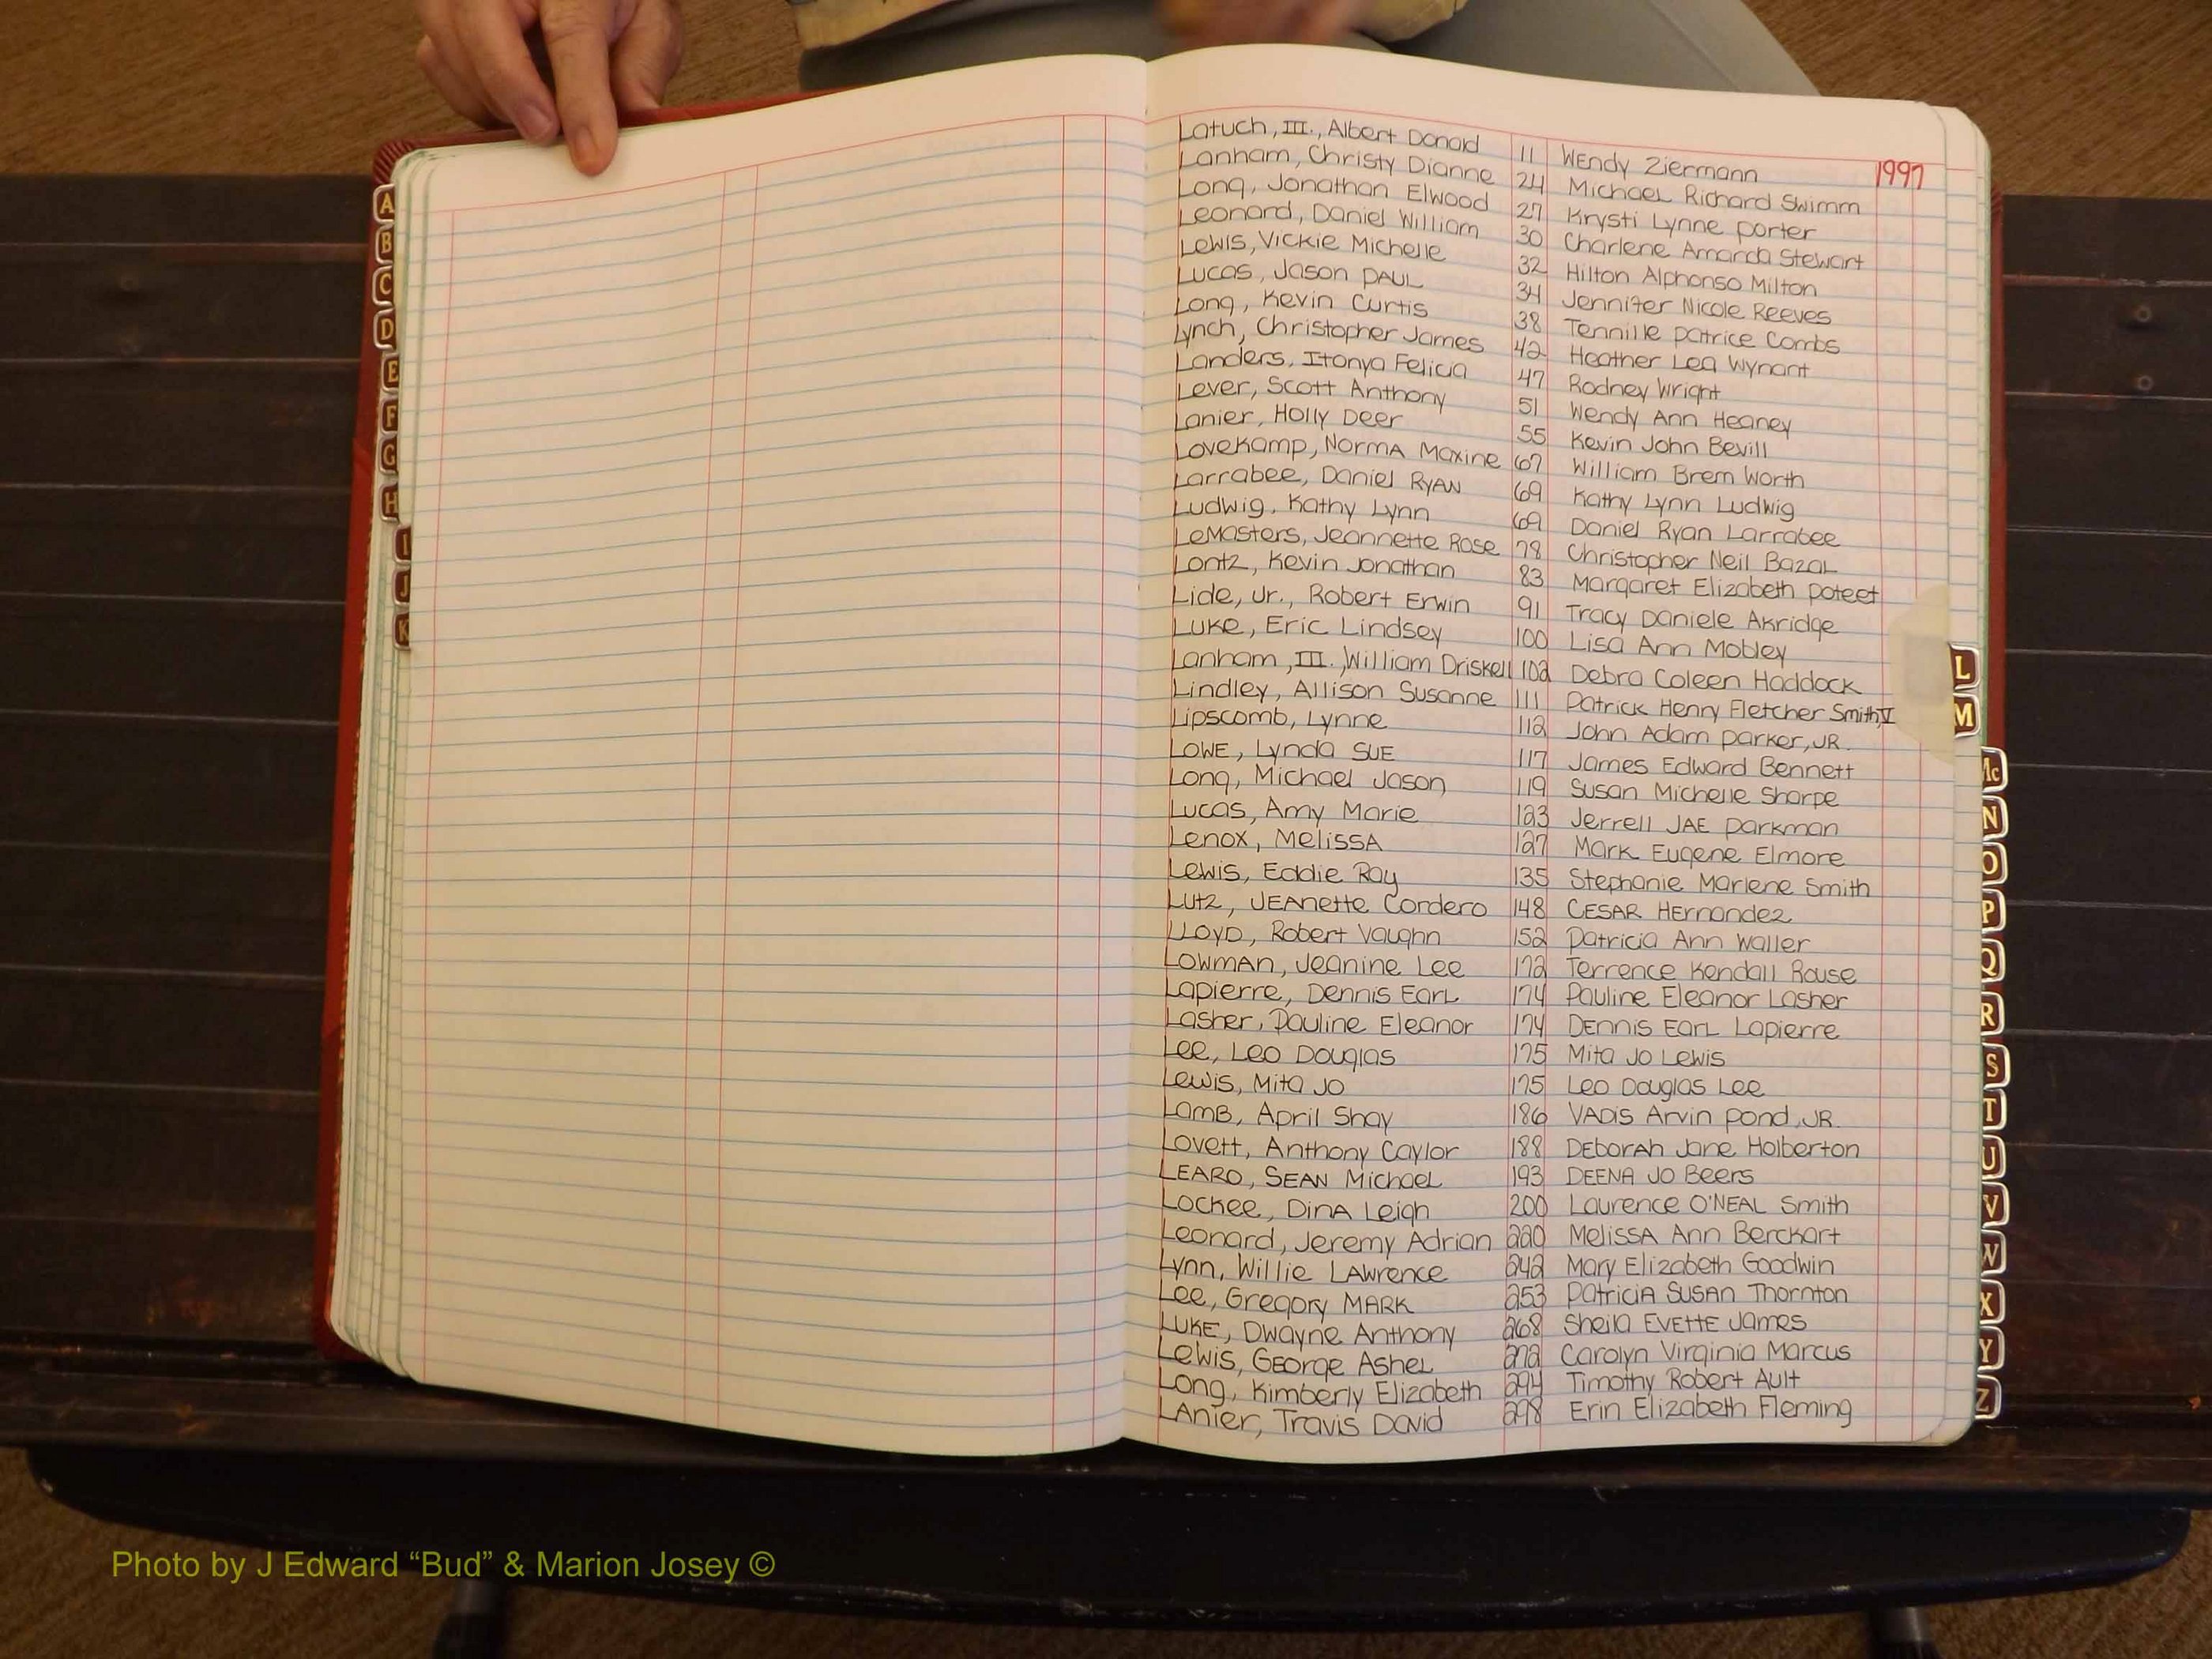 Latuch, III., Albert Donald 11 Wendy Ziermann 1997
Lanham, Christy Dianne 24 Michael Richard Swimm
Long, Jonathan Elwood 27 Krysti Lynne Porter
Leonard, Daniel William 30 Charlene Amarda Stewart
Lewis, Vickie Michelle 32 Hilton Alphonso Milton
Lucas, Jason PAUL 34 Jennifer Nicole Reeves
Long, Kevin Curtis 38 Tennille Patrice Combs
Lynch, Christopher James 42 Heather Lea Wynant
Landers, Itonya Felicia 47 Rodney Wright
Lever, Scott Anthony 51 Wendy Ann Heaney
Lanier, Holly Deer 55 Kevin John Bevill
Lovekamp, Norma Maxine 67 William Brem Worth
Larrabee, Daniel RYAN 69 Kathy Lynn Ludwig
Ludwig, Kathy Lynn 69 Daniel Ryan Larrabee
LeMasters, Jeannette Rose 78 Christopher Neil Bazal
Lontz, Kevin Jonathan 83 Margaret Elizabeth Poteet
Lide, Jr., Robert Erwin 91 Tracy Daniele Akridge
Luke, Eric Lindsey 100 Lisa Ann Mobley
Lanham, III., William Driskell 102 Debra Coleen Haddock
Lindley, Allison Susanne 111 Patrick Henry Fletcher Smith, V
Lipscomb, Lynne 112 John Adam Parker, JR.
LOWE, Lynda SUE 117 James Edward Bennett
Long, Michael Jason 119 Susan Michelle Sharpe
Lucas, Amy Marie 123 Jerrell JAE Parkman
Lenox, Melissa 127 Mark Eugene Elmore
Lewis, Eddie Ray 135 Stephanie Marlene Smith
Lutz, JEAnette Cordero 148 CESAR Hernandez
LLOYD, Robert Vaughn 152 Patricia Ann Waller
LOWMAN, Jeanine Lee 172 Terrence Kendall Rouse
Lapierre, Dennis Earl 174 Pauline Eleanor Lasher
Lasher, Pauline Eleanor 174 Dennis Earl Lapierre
Lee, Leo Douglas 175 Mita Jo Lewis
Lewis, Mita Jo 175 Leo Douglas Lee
Lamb, April Shay 186 VADIS Arvin Pond, JR.
Lovett, Anthony Caylor 188 DEBORAH Jane Holberton
LEARO, SEAN Michael 193 DEENA JO Beers
Lockee, Dina Leigh 200 Laurence O'NEAL Smith
Leonard, Jeremy Adrian 220 Melissa Ann Berckart
Lynn, Willie LAwrence 242 Mary Elizabeth Goodwin
Lee, Gregory MARK 253 Patricia SUSAN Thornton
LUKE, Dwayne Anthony 268 Sheila EVETTE James
Lewis, George Ashel 272 Carolyn Virginia Marcus
Long, Kimberly Elizabeth 294 Timothy Robert Ault
LAnier, Travis David 298 Erin Elizabeth Fleming
A
B
C
D
E
F
G
H
I
J
K
L
M
Mc
N
O
P
Q
R
S
T
U
V
W
X
Y
Z
Photo by J Edward “Bud” & Marion Josey ©